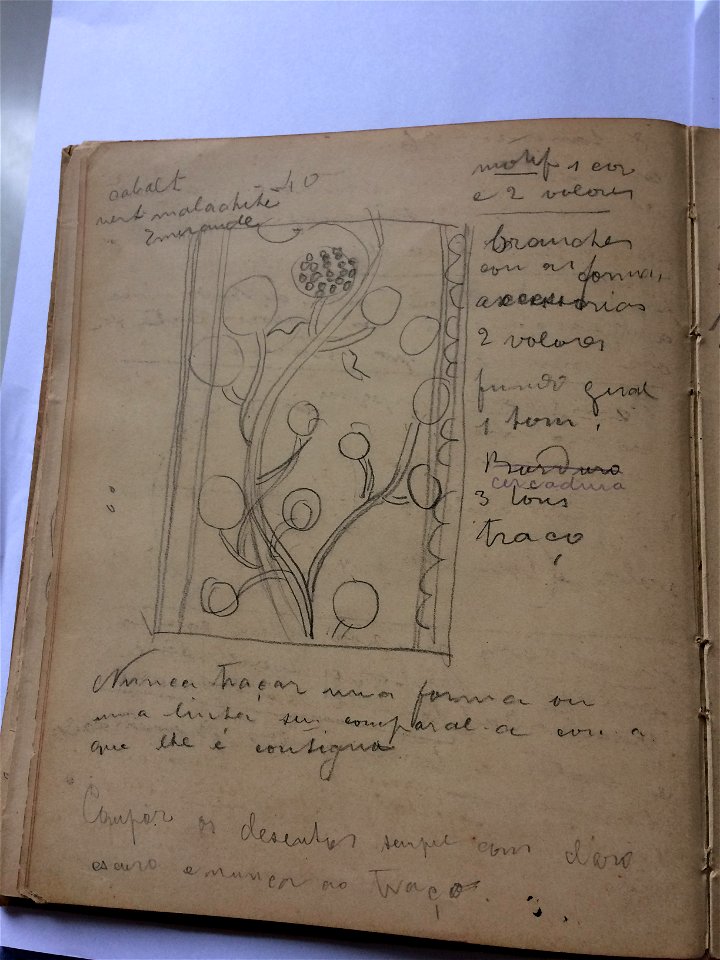 cabalt
vert malachite - 40
" Emeraude
motif 1 cor
e 2 valores
branches
con as formas
accessorias
2 valores
fundo geral
1 tom,
Bordura
cercadura
3 tons
traço
Nunca traçar uma forma ou
uma linha sem comparal-a com a
que lhe é contigua
Compôr os desenhos sempre com claro
escuro e nunca ao traço